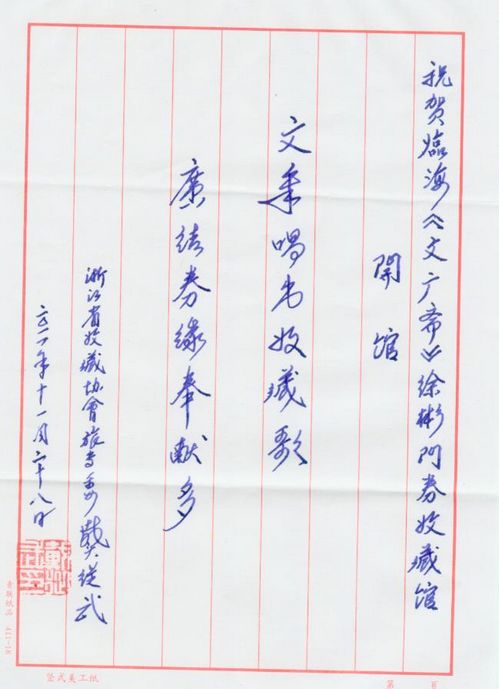 祝贺临海《文广斋》徐彬门券收藏馆
開馆
文采唱出收藏歌
广结券缘奉献多
浙江省收藏协會旅专委 龚从武
二〇一一年十一月二十八日
竖式美工纸
第 页